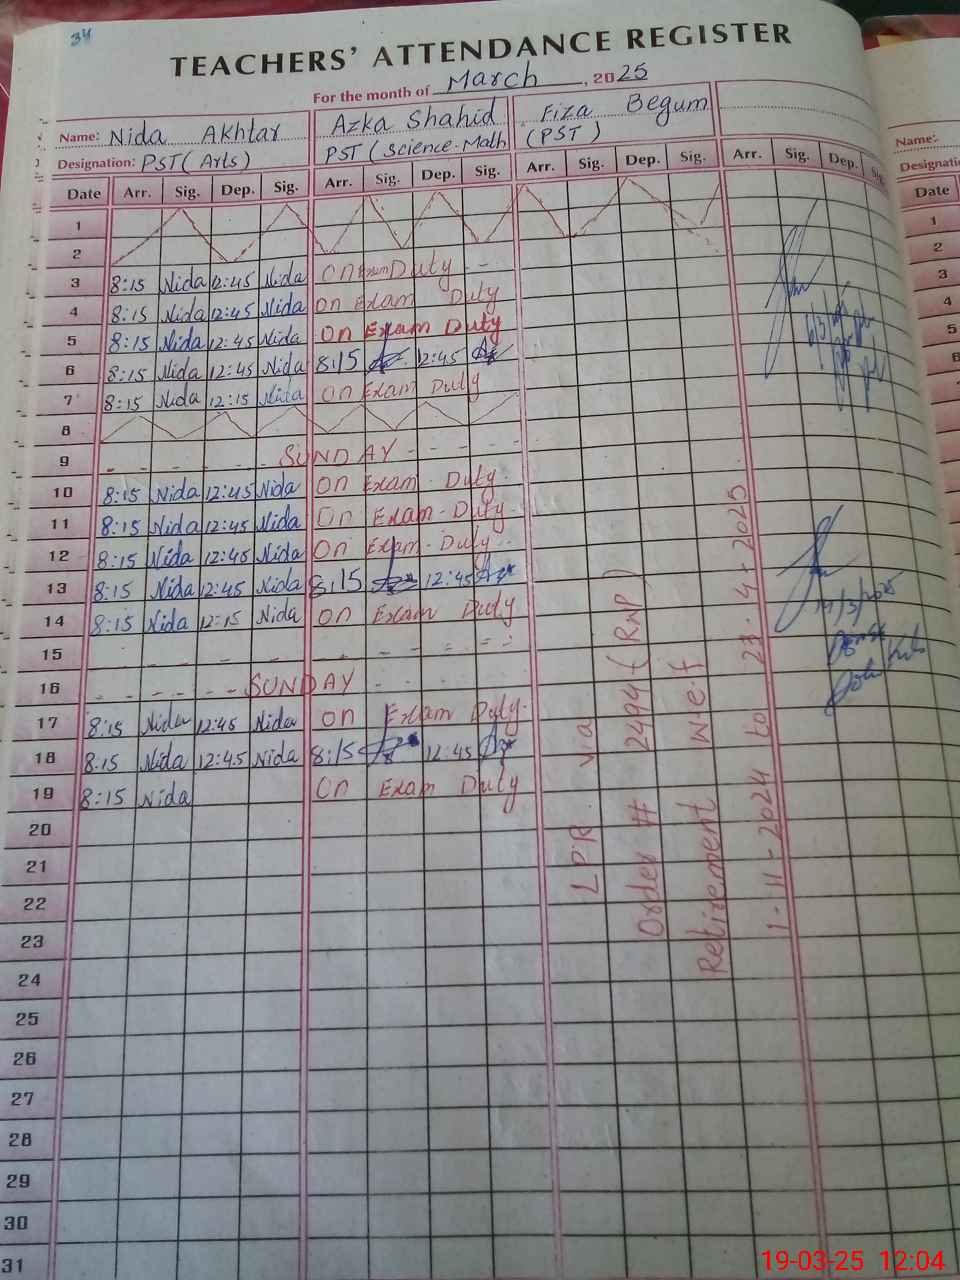 34
TEACHERS' ATTENDANCE REGISTER
For the month of March, 2025
Name: Nida Akhtar Azka Shahid Fiza Begum
Designation: PST (Arts) PST (Science-Math (PST)
Date Arr. Sig. Dep. Sig. Arr. Sig. Dep. Sig. Arr. Sig. Dep. Sig. Arr. Sig. Dep. Sig.
1
2
3 8:15 Nida 12:45 Nida On Exam Duty
4 8:15 Nida 12:45 Nida On Exam Duty
5 8:15 Nida 12:45 Nida On Exam Duty
6 8:15 Nida 12:45 Nida 8:15 12:45
7 8:15 Nida 12:15 Nida On Exam Duty
8
9 SUNDAY
10 8:15 Nida 12:45 Nida On Exam Duty
11 8:15 Nida 12:45 Nida On Exam Duty
12 8:15 Nida 12:45 Nida On Exam Duty
13 8:15 Nida 12:45 Nida 8:15 12:45
14 8:15 Nida 12:15 Nida On Exam Duty
15
16 SUNDAY
17 8:15 Nida 12:45 Nida On Exam Duty
18 8:15 Nida 12:45 Nida 8:15 12:45
19 8:15 Nida On Exam Duty
20
21
22
23
24
25
26
27
28
29
30
31
LPR via
Order # 2494 (RWP)
Retirement w.e.f
1-11-2024 to 23-4-2025
Name:
Designati
Date
1
2
3
4
5
6
19-03-25 12:04